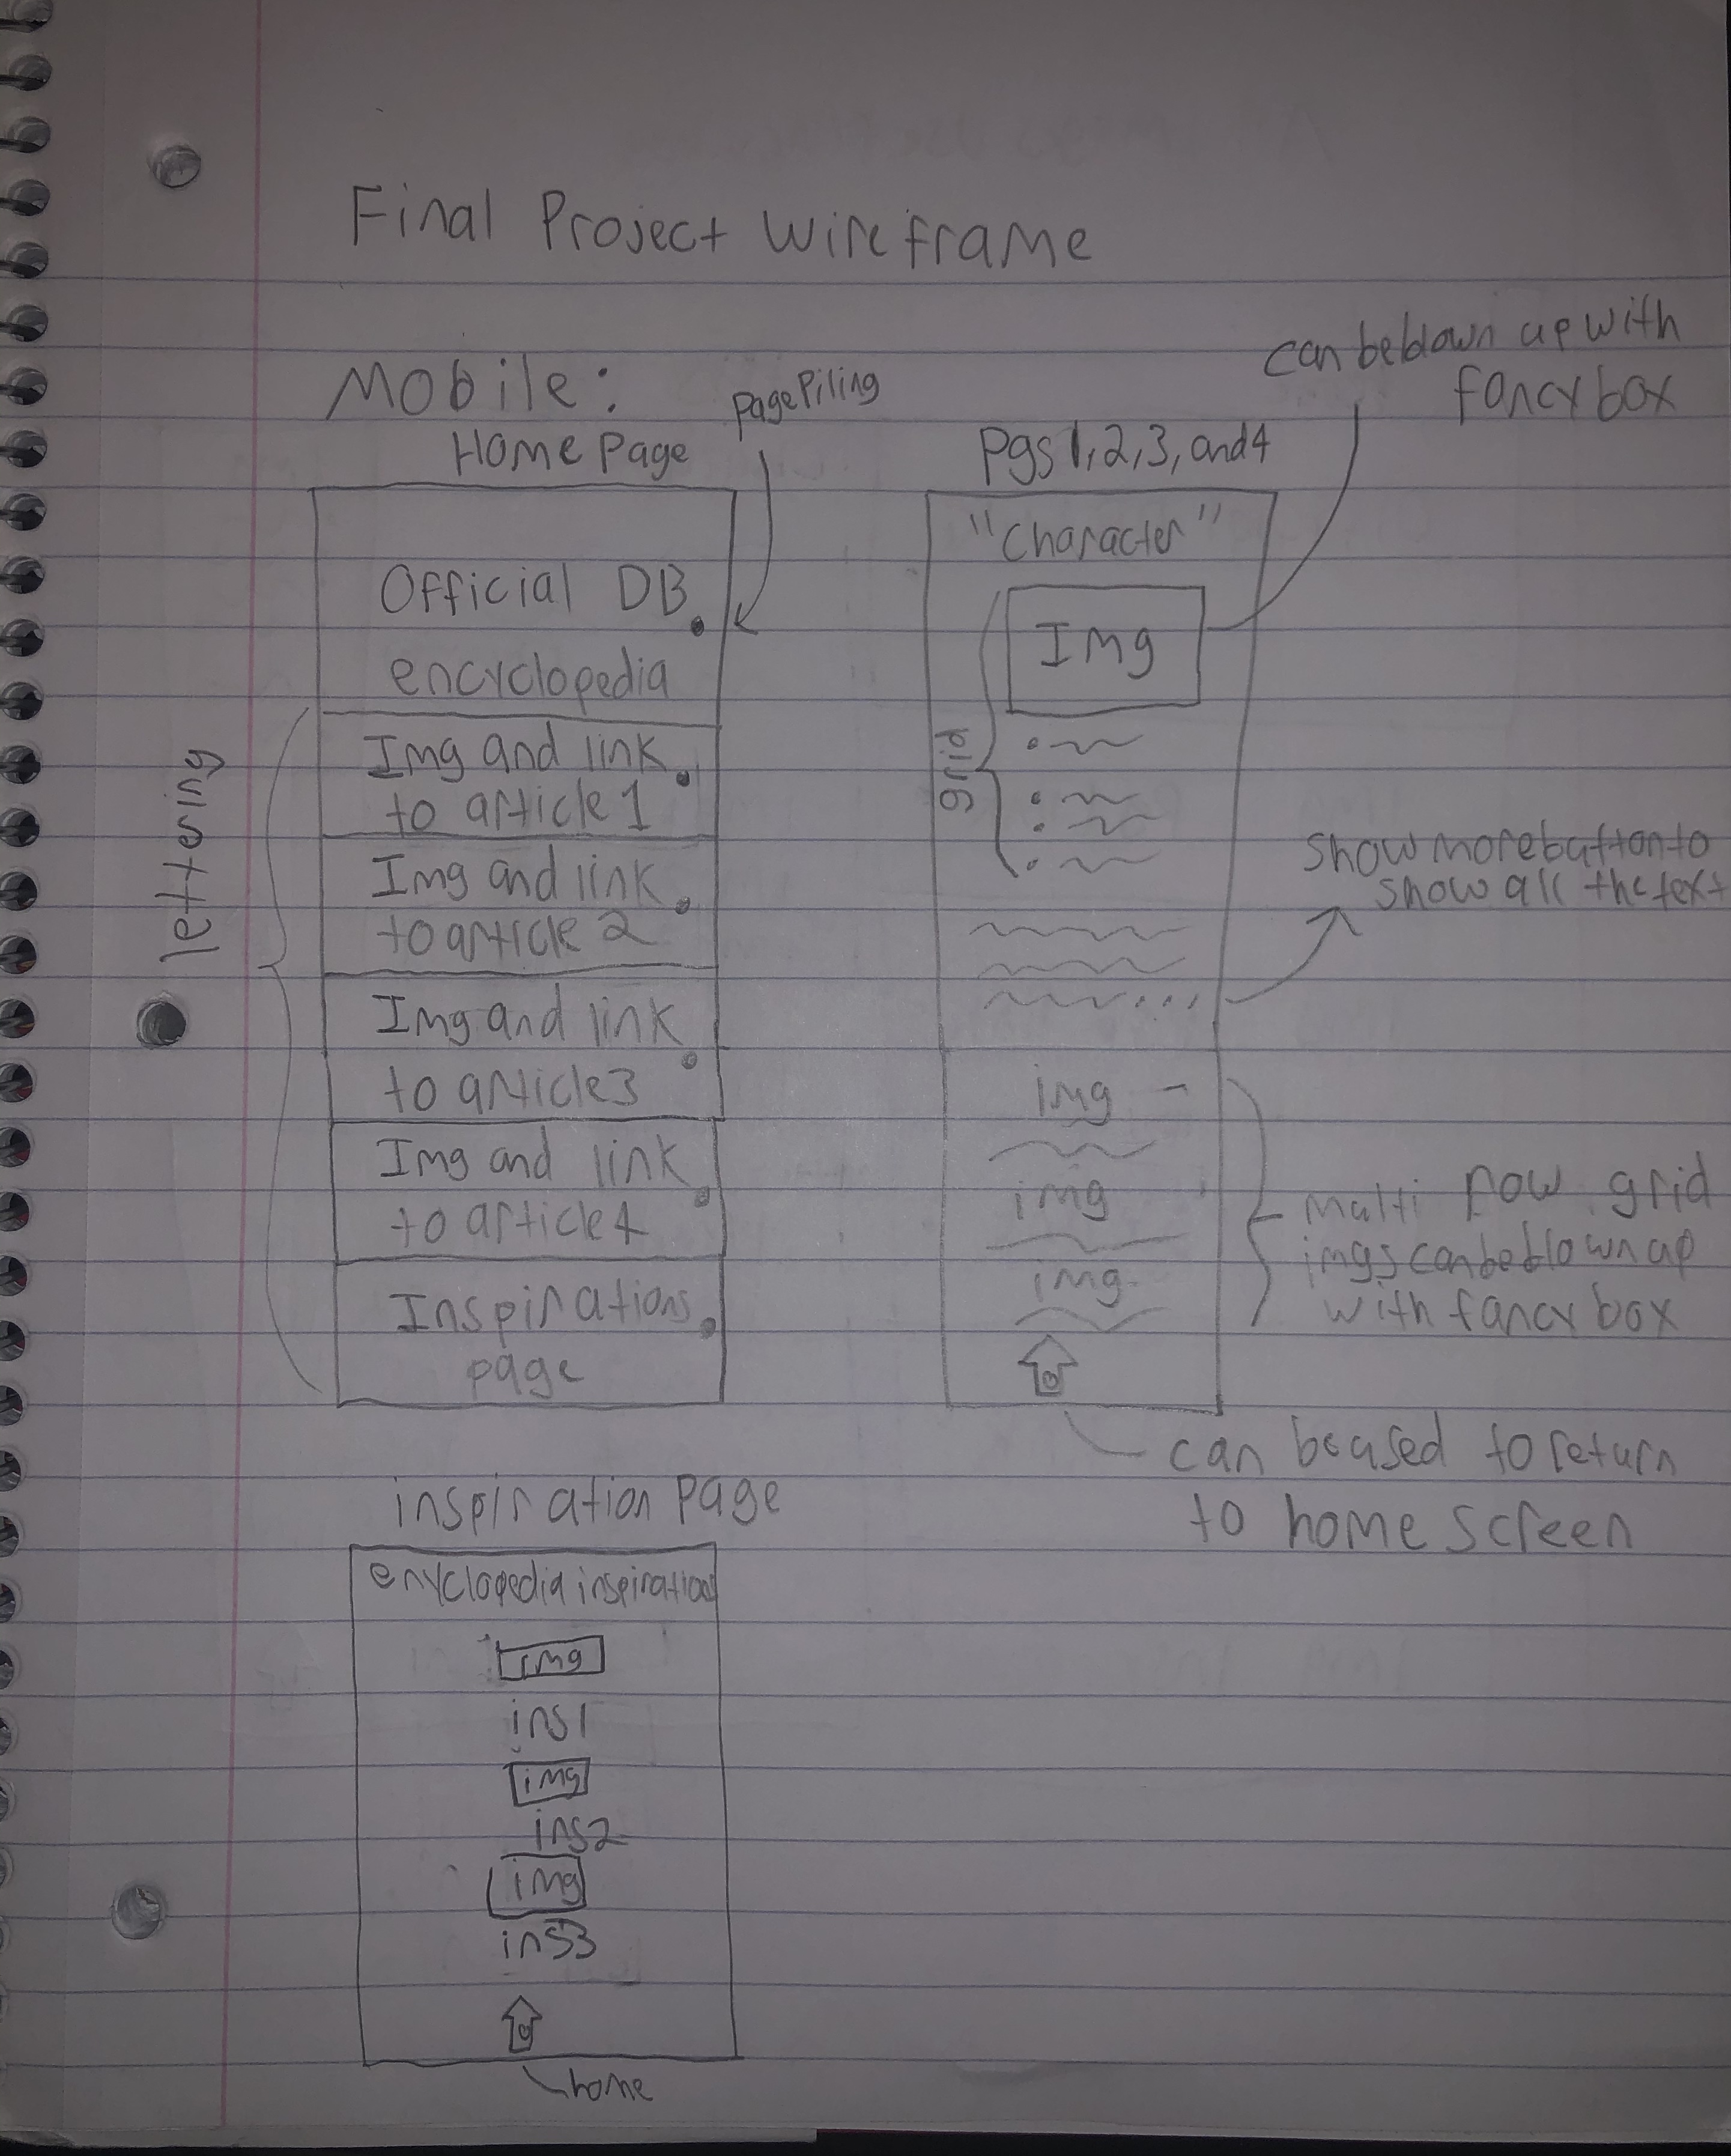 Final Project Wireframe
Mobile:
Home Page
pagePiling
Official DB
encyclopedia
Img and link
to article 1
Img and link
to article 2
Img and link
to article3
Img and link
to article4
Inspirations
page
lettering
Pgs 1, 2, 3, and 4
can be blown up with
fancybox
"Character"
Img
grid
show more button to
show all the text
img
img
img
multi row grid
imgs can be blown up
with fancybox
can be used to return
to home screen
inspiration page
enyclopedia inspirations
img
ins1
img
ins2
img
ins3
home